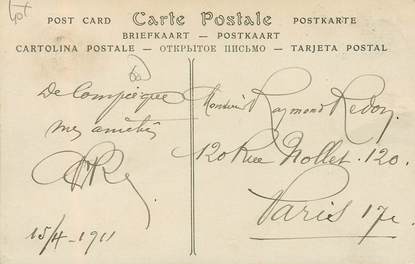 POST CARD Carte Postale POSTKARTE
BRIEFKAART - POSTKAART
CARTOLINA POSTALE - ОТКРЫТОЕ ПИСЬМО - TARJETA POSTAL
De Compiègne
mes amitiés
15/4 - 1911
Monsieur Raymond Redon
120 Rue Nollet. 120.
Paris 17e